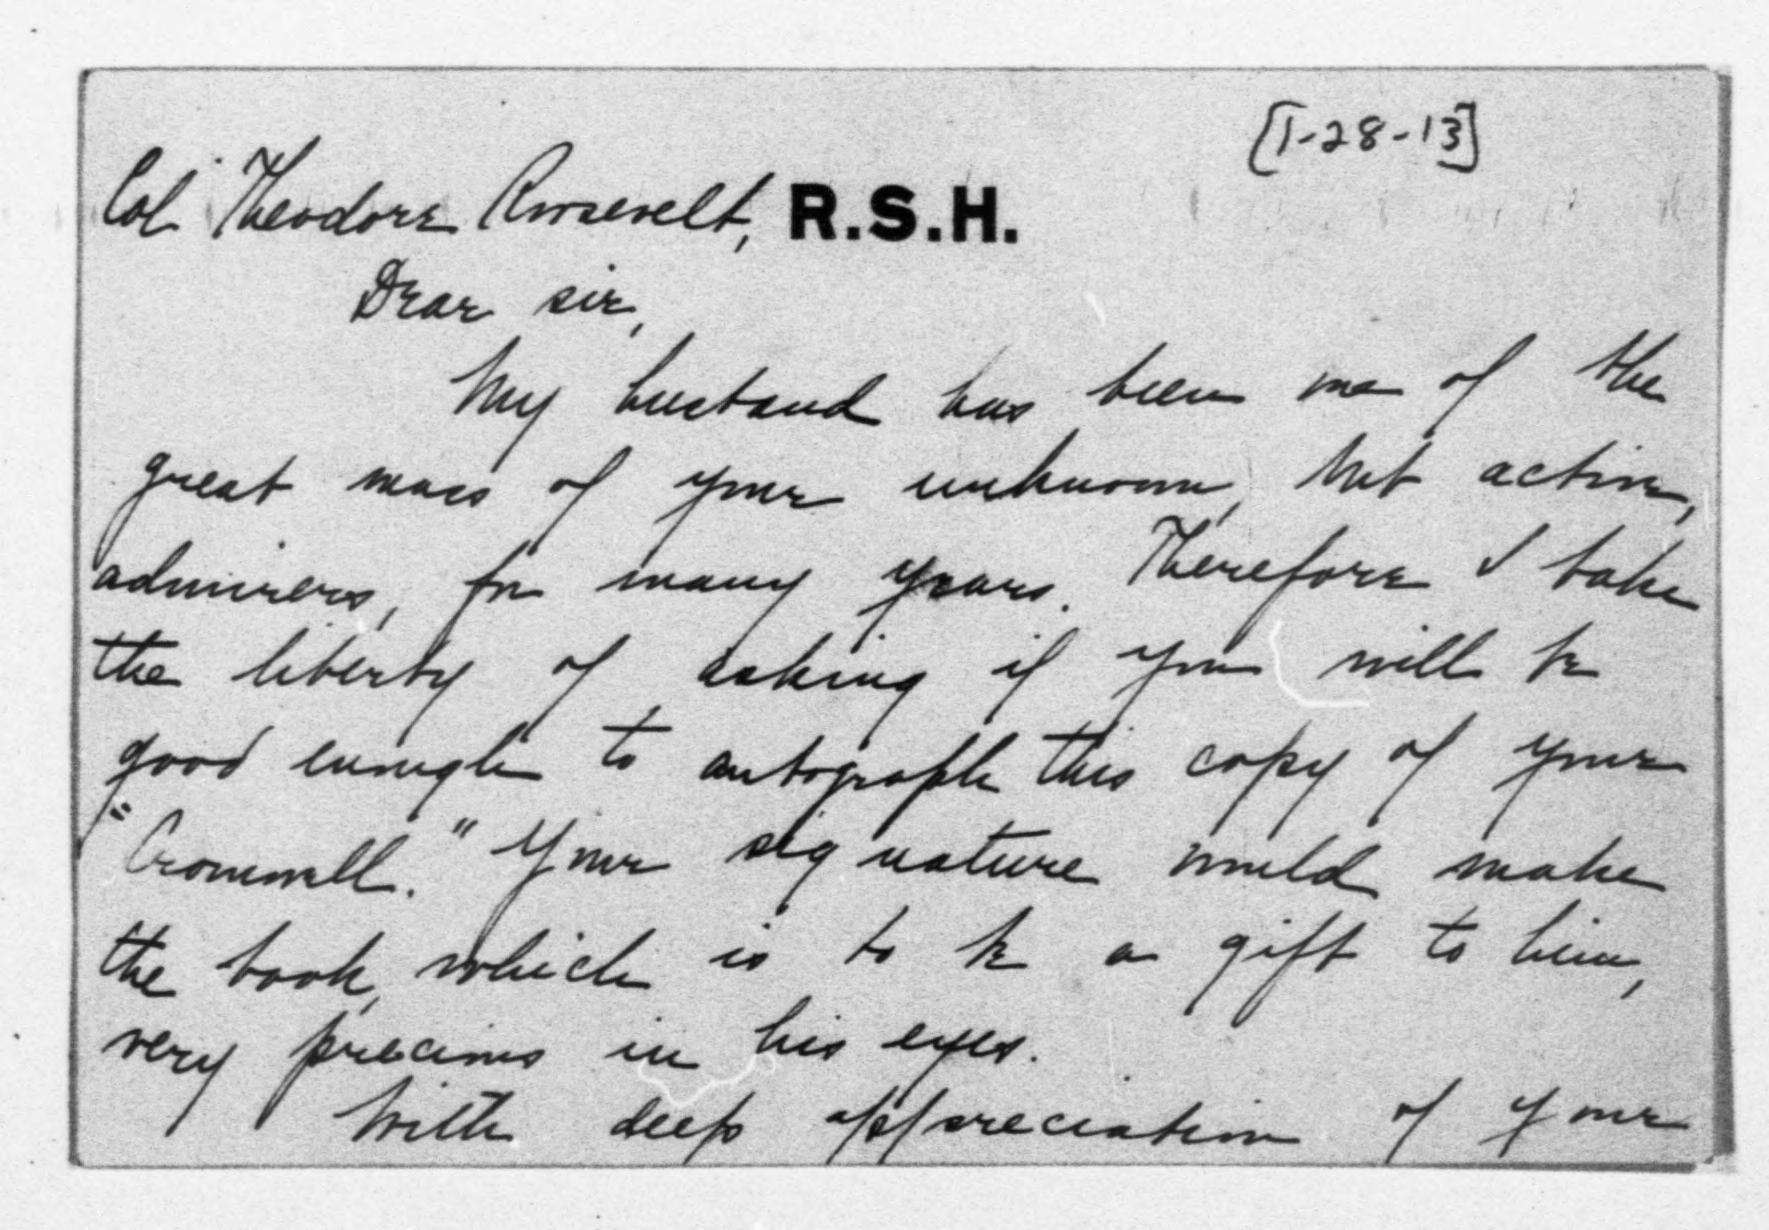 [1-28-13]
Col. Theodore Roosevelt, R.S.H.
Dear sir,
My husband has been one of the
great mass of your unknown, but active,
admirers, for many years. Therefore I take
the liberty of asking if you will be
good enough to autograph this copy of your
"Cromwell." Your signature would make
the book, which is to be a gift to him,
very precious in his eyes.
With deep appreciation of your